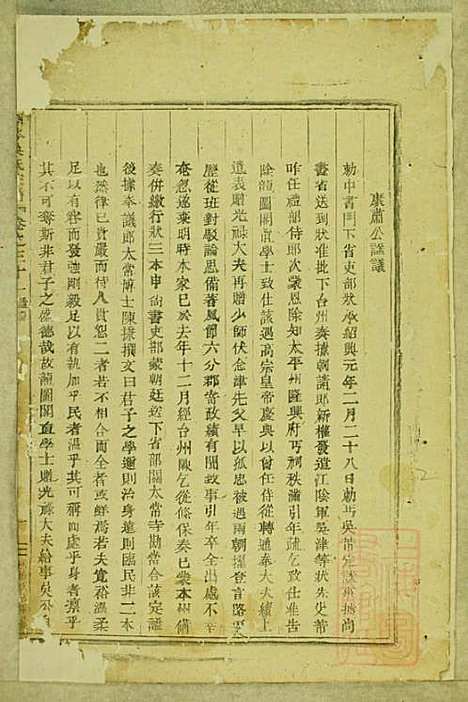 康肅公諡議
勅中書門下省吏部狀承紹興元年二月二十八日勅
書省送到狀准批下台州奏據朝請郎新權發遣江陰軍吳津等狀先父芾
昨任禮部侍郎次蒙恩除知太平州隆興府丐祠秩滿引年疏乞致仕准告
除龍圖閣直學士致仕該遇高宗皇帝慶典以曾任侍從轉通奉大夫續上
遺表贈光祿大夫再贈少師伏念津先父早以孤忠被遇兩朝擢登言路
歷從班對駁論思備著風節六分郡寄政績有聞故事引年卒全出處不
奄忽遂棄明時本家已於去年十二月經台州陳乞從條保奏已蒙本州備
奏併繳行狀三本申尚書吏部蒙朝廷送下省部關太常寺勘當合該定諡
後據奉議郎太常博士陳撰文曰君子之學邇則治身遠則臨民非二本
也然律已貴嚴而容人貴恕二者若不相合全者或鮮焉若夫寬裕溫柔
足以有容而發強剛毅足以有執加乎民者溫乎其可稱而處乎身者凛乎
其不可奪斯非君子之盛德哉故龍圖閣直學士贈光祿大夫給事吳公